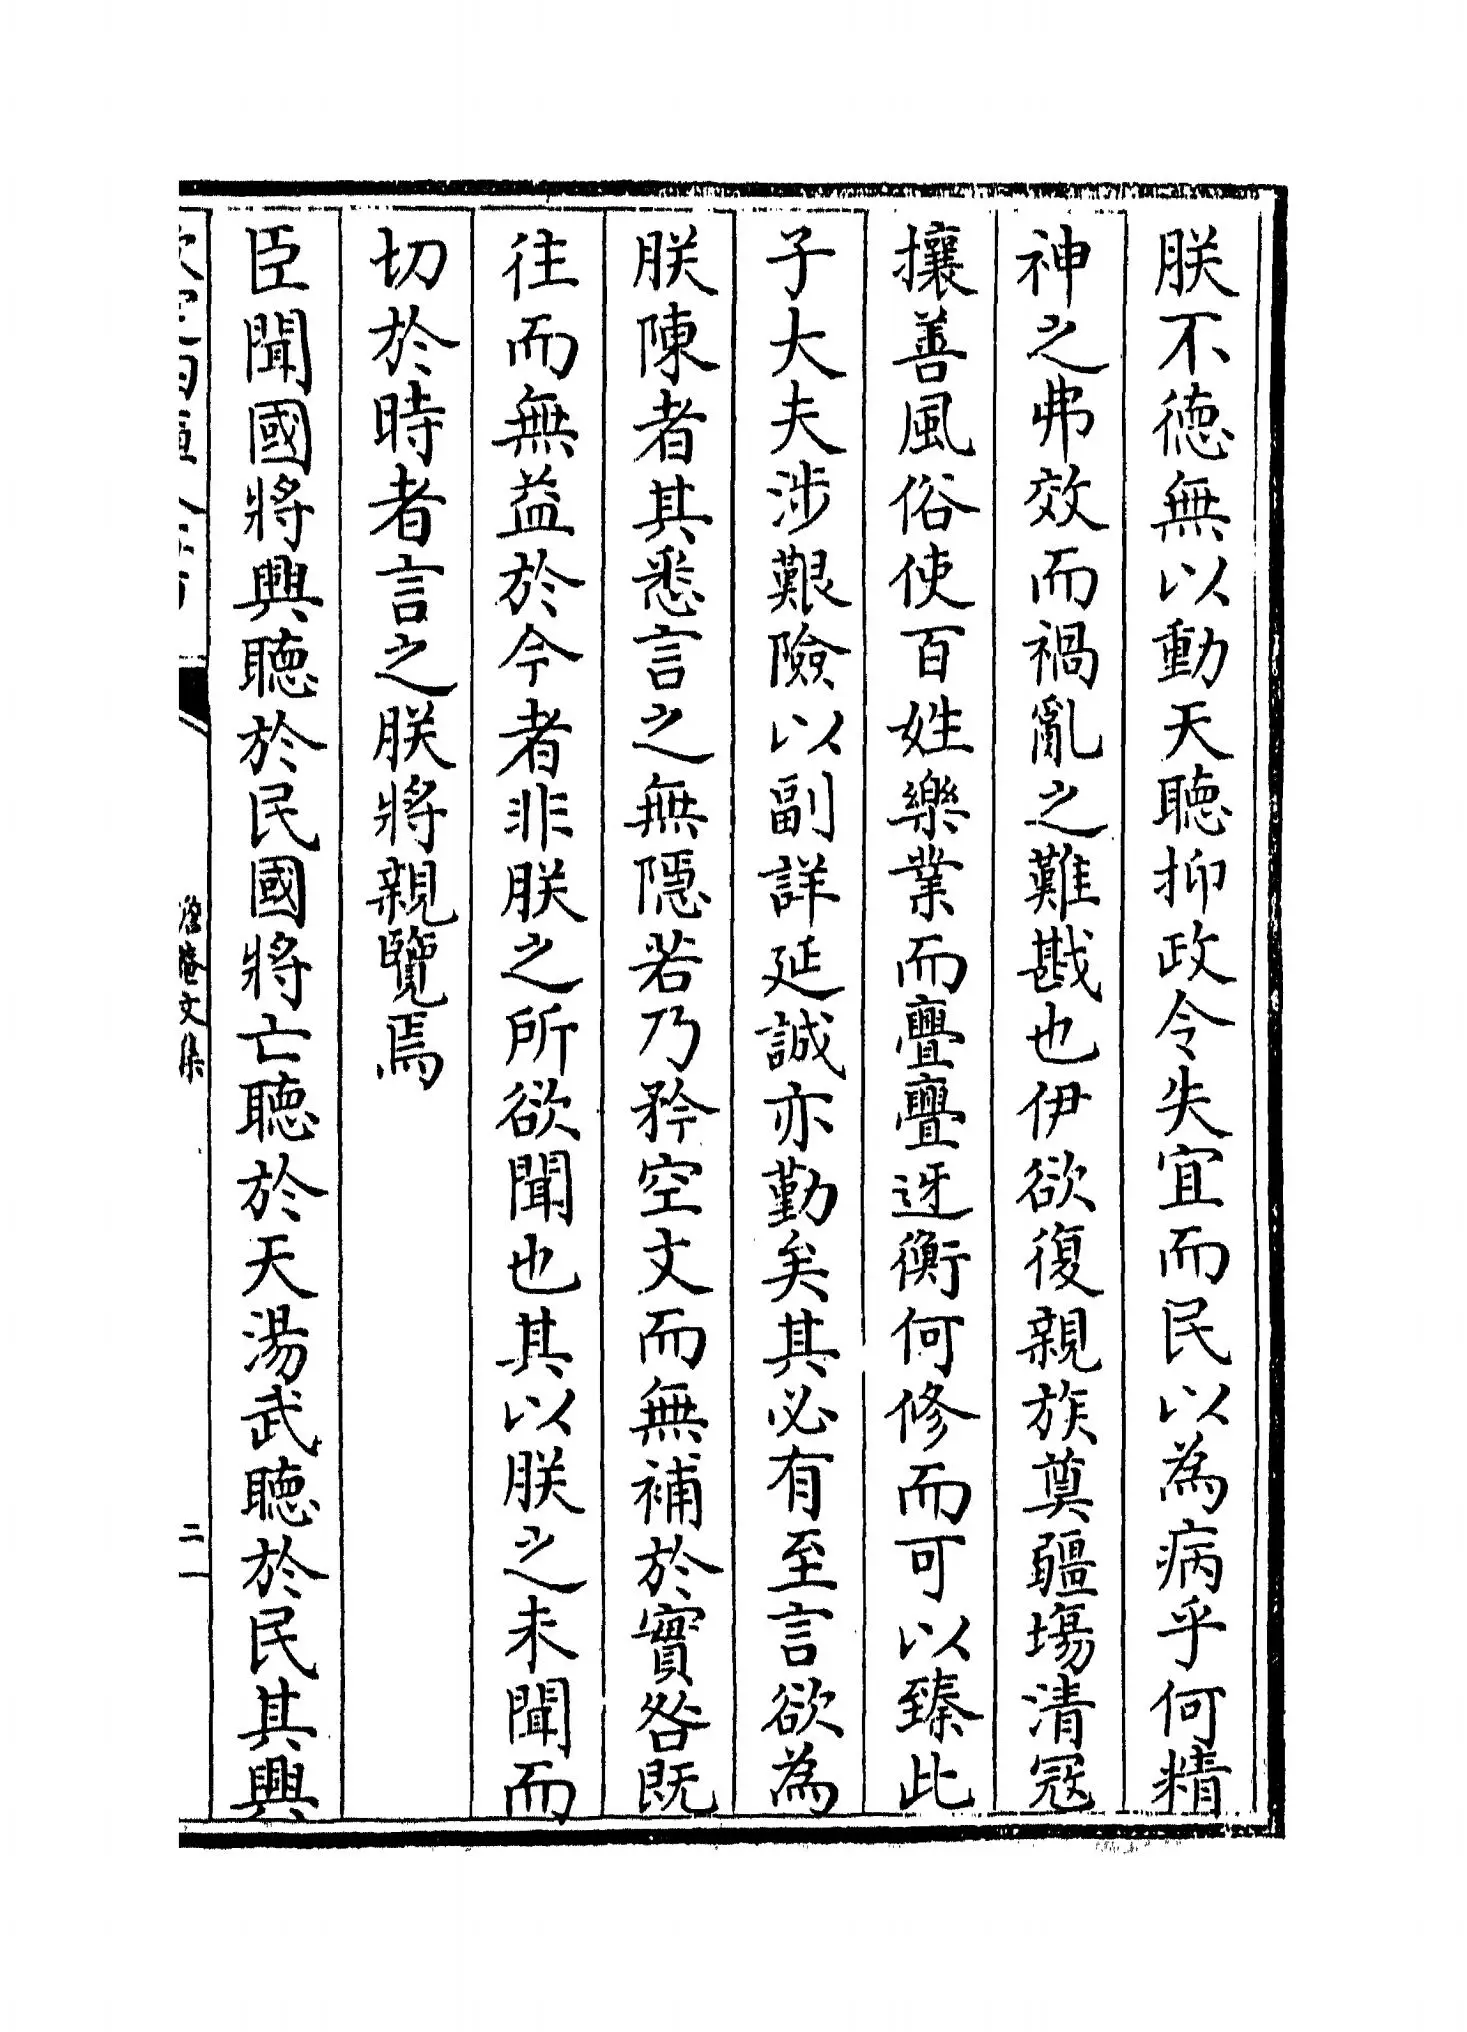 朕不德無以動天聽抑政令失宜而民以為病乎何精
神之弗效而禍亂之難戡也伊欲復親族奠疆場清寇
攘善風俗使百姓樂業而亹亹迓衡何修而可以臻此
子大夫涉艱險以副詳延誠亦勤矣其必有至言欲為
朕陳者其悉言之無隱若乃矜空文而無補於實咎既
往而無益於今者非朕之所欲聞也其以朕之未聞而
切於時者言之朕將親覽焉
臣聞國將興聽於民國將亡聽於天湯武聽於民其興
澹菴文集
二